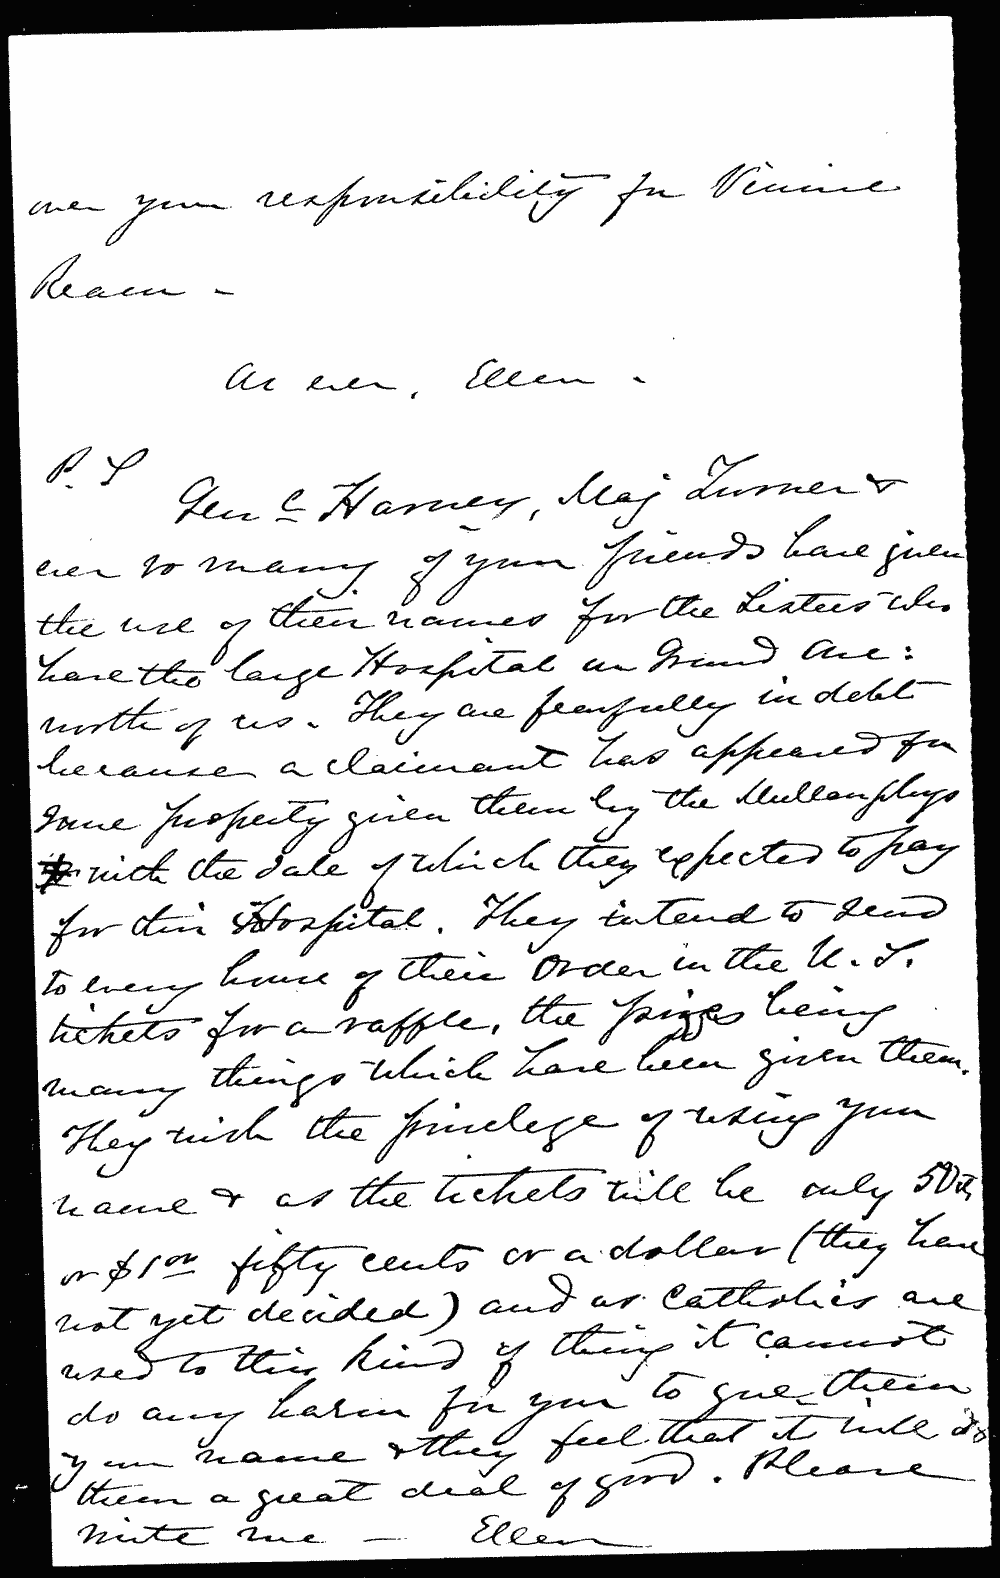 over your responsibility for Vinnie
Ream -
As ever, Ellen -
P. S
Genl Harney, Maj Turner &
ever so many of your friends have given
the use of their names for the Sisters who
have the large Hospital on Grand Ave:
north of us. They are fearfully in debt
because a claimant has appeared for
some property given them by the Mullanphys
with the sale of which they expected to pay
for this Hospital. They intend to send
to every house of their Order in the U. S.
tickets for a raffle, the prizes being
many things which have been given them.
They wish the privilege of using your
name & as the tickets will be only 50cts
or $1.00 fifty cents or a dollar (they have
not yet decided) and as Catholics are
used to this kind of thing it cannot
do any harm for you to give them
your name & they feel that it will do
them a great deal of good. Please
write me — Ellen